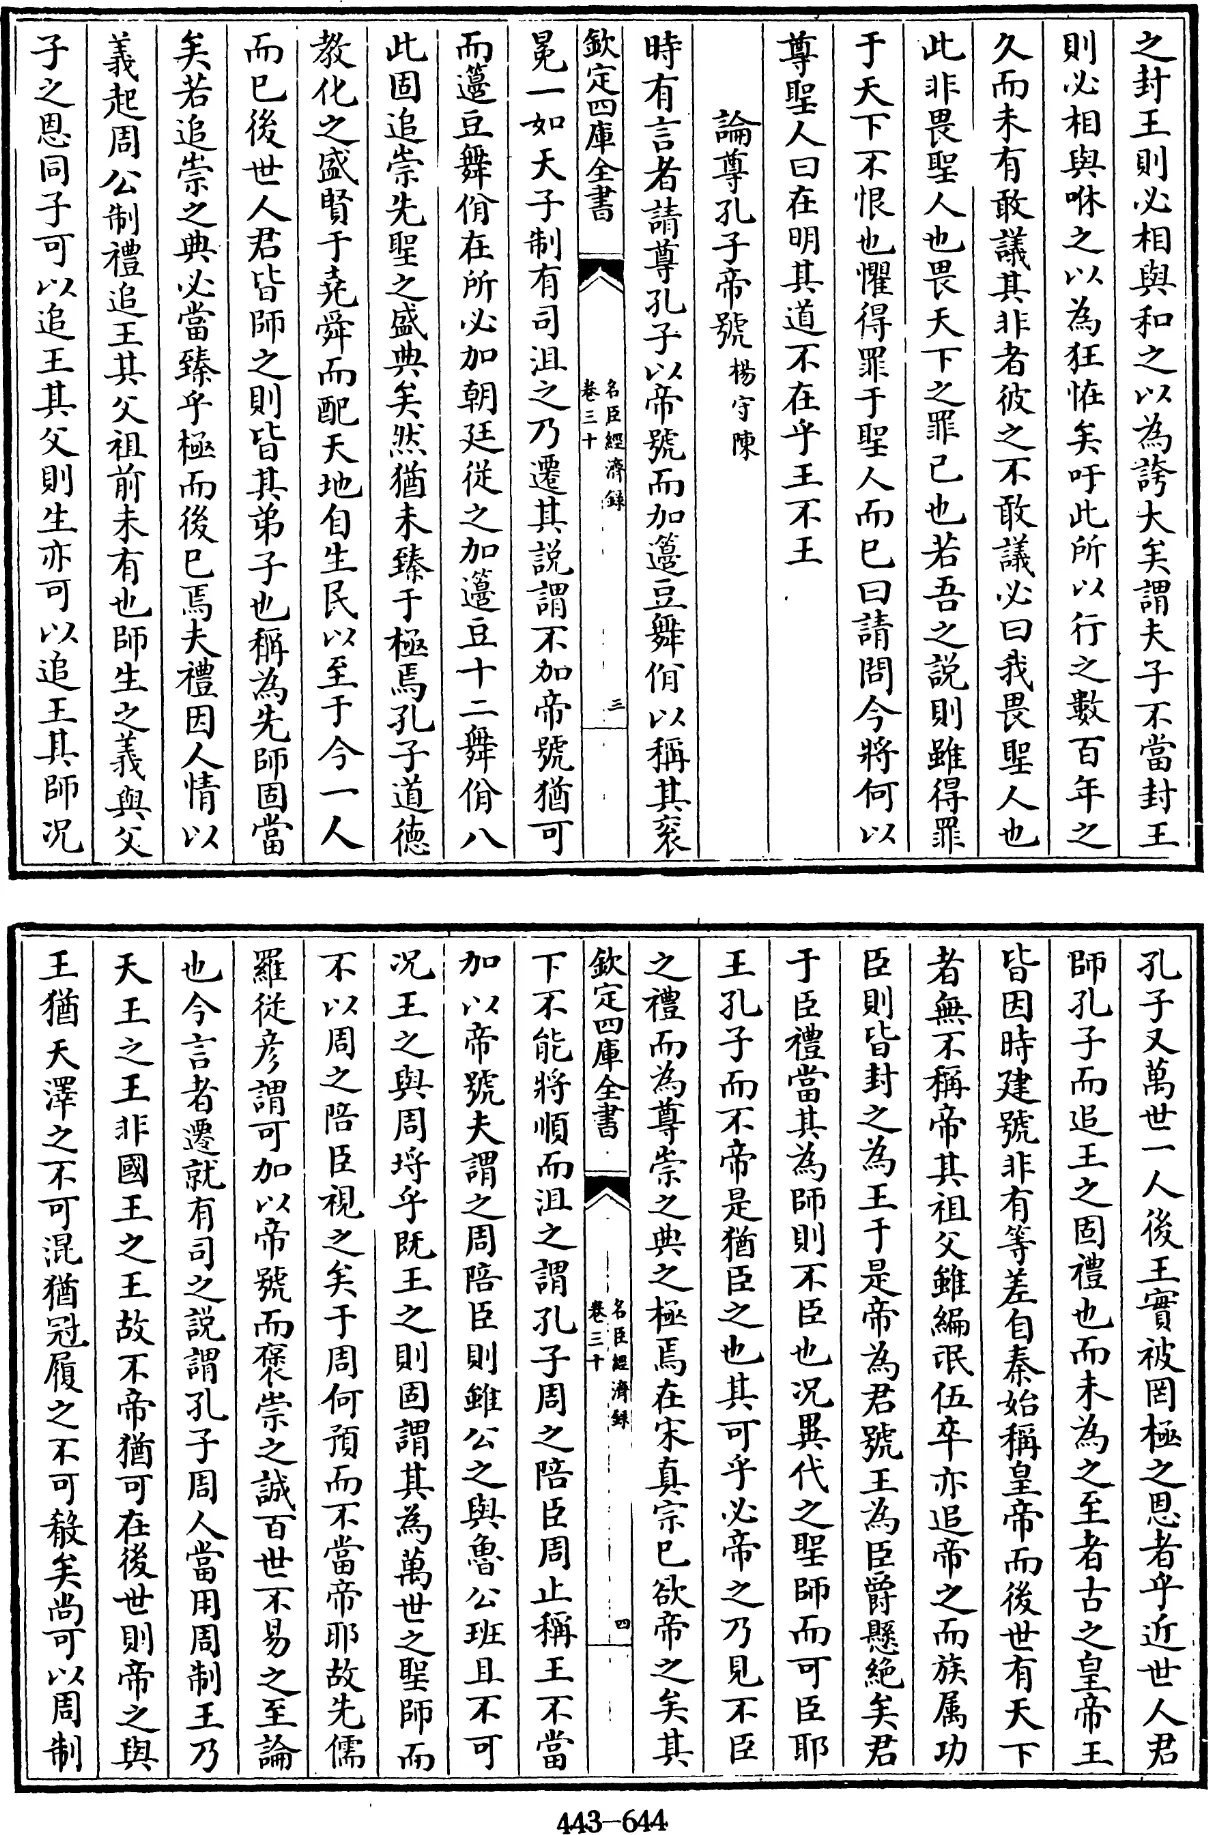 之封王則必相與和之以為誇大矣謂夫子不當封王
則必相與咻之以為狂恠矣吁此所以行之數百年之
久而未有敢議其非者彼之不敢議必曰我畏聖人也
此非畏聖人也畏天下之罪己也若吾之説則雖得罪
于天下不恨也懼得罪于聖人而已曰請問今將何以
尊聖人曰在明其道不在乎王不王
論尊孔子帝號楊守陳
時有言者請尊孔子以帝號而加籩豆舞佾以稱其衮
欽定四庫全書
名臣經濟録
卷三十
三
冕一如天子制有司沮之乃遷其説謂不加帝號猶可
而籩豆舞佾在所必加朝廷從之加籩豆十二舞佾八
此固追崇先聖之盛典矣然猶未臻于極焉孔子道德
教化之盛賢于堯舜而配天地自生民以至于今一人
而已後世人君皆師之則皆其弟子也稱為先師固當
矣若追崇之典必當臻乎極而後已焉夫禮因人情以
義起周公制禮追王其父祖前未有也師生之義與父
子之恩同子可以追王其父則生亦可以追王其師况
孔子又萬世一人後王實被罔極之恩者乎近世人君
師孔子而追王之固禮也而未為之至者古之皇帝王
皆因時建號非有等差自秦始稱皇帝而後世有天下
者無不稱帝其祖父雖編氓伍卒亦追帝之而族属功
臣則皆封之為王于是帝為君號王為臣爵懸絶矣君
于臣禮當其為師則不臣也况異代之聖師而可臣耶
王孔子而不帝是猶臣之也其可乎必帝之乃見不臣
之禮而為尊崇之典之極焉在宋真宗已欲帝之矣其
欽定四庫全書
名臣經濟録
卷三十
四
下不能將順而沮之謂孔子周之陪臣周止稱王不當
加以帝號夫謂之周陪臣則雖公之與魯公班且不可
况王之與周埒乎既王之則固謂其為萬世之聖師而
不以周之陪臣視之矣于周何預而不當帝耶故先儒
羅從彦謂可加以帝號而褒崇之誠百世不易之至論
也今言者遷就有司之説謂孔子周人當用周制王乃
天王之王非國王之王故不帝猶可在後世則帝之與
王猶天澤之不可混猶冠履之不可殽矣尚可以周制
443—644